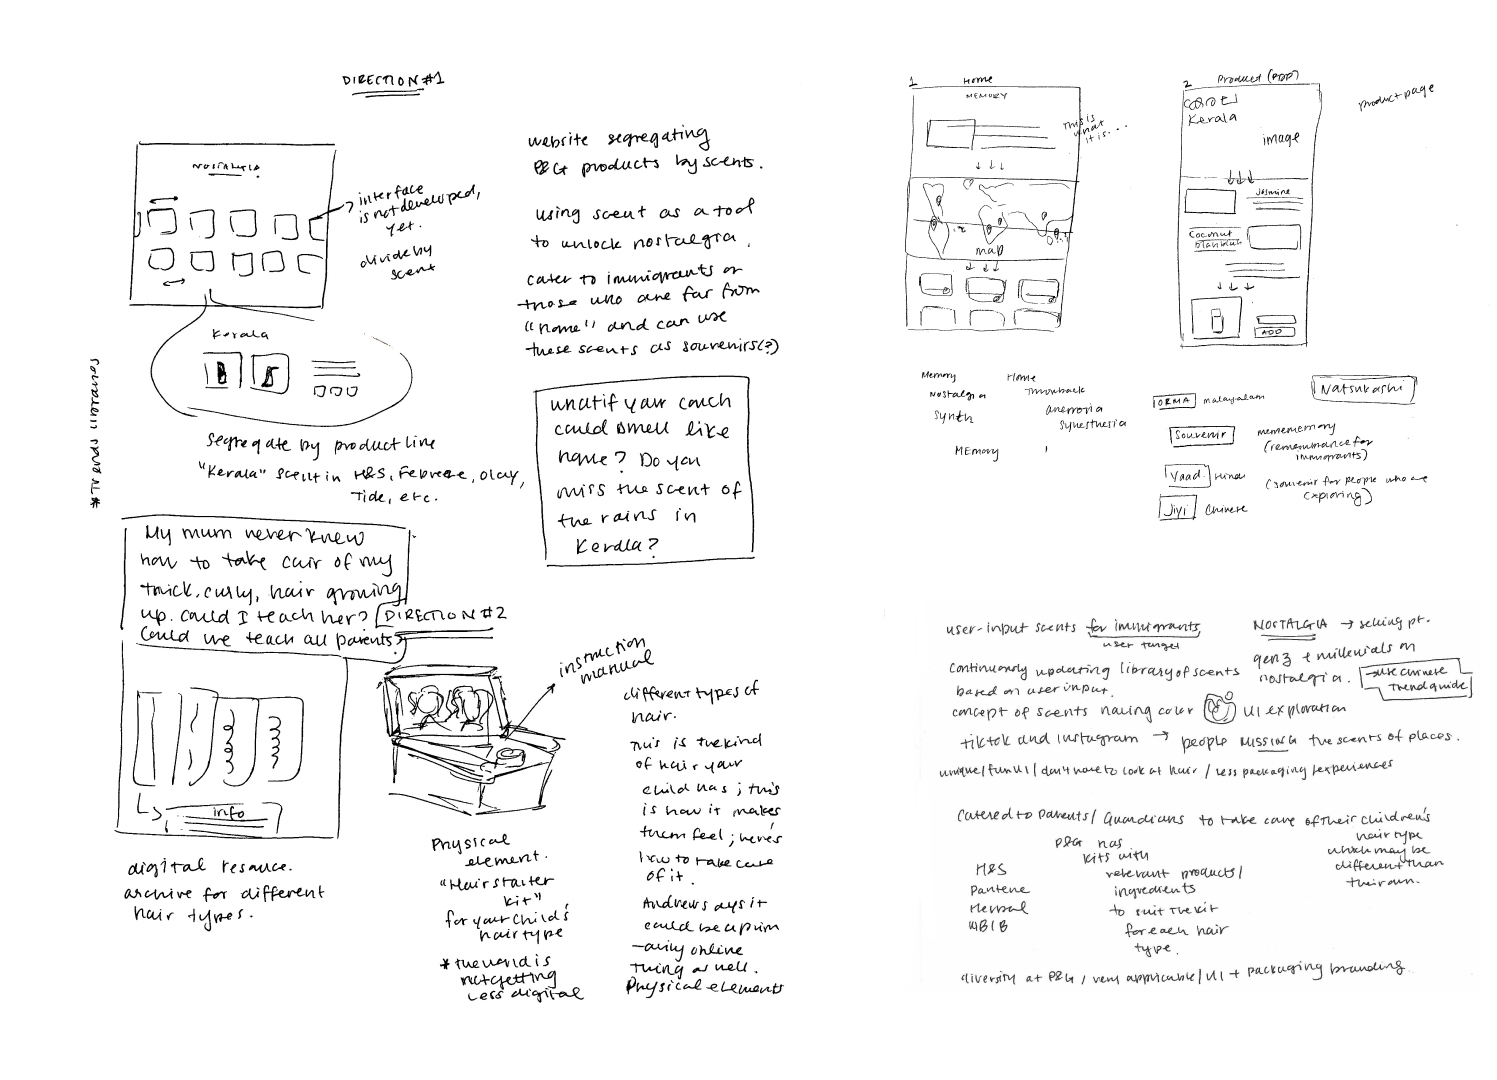 DIRECTION #1
NOSTALGIA
interface
is not developed,
yet.
divide by
scent
Kerala
segregate by product line
"Kerala" scent in H&S, Febreze, Olay,
Tide, etc.
website segregating
P&G products by scents.
using scent as a tool
to unlock nostalgia.
cater to immigrants or
those who are far from
"home" and can use
these scents as souvenirs(?)
whatif your couch
could smell like
home? Do you
miss the scent of
the rains in
Kerala?
My mum never knew
how to take cair of my
thick, curly, hair growing
up. could I teach her?
Could we teach all parents?
DIRECTION #2
info
digital resource.
archive for different
hair types.
instruction
manual
Physical
element.
"Hair starter
kit"
for your child's
hair type
* the world is
not getting
less digital
different types of
hair.
This is the kind
of hair your
child has; this
is how it makes
them feel; here's
how to take care
of it.
Andrew says it
could be a prim
-arily online
thing as well.
Physical elements
1 Home
MEMORY
This is
what
it is...
map
2 Product (PDP)
Kerala
image
Jasmine
Coconut
ADD
product page
Memory
Nostalgia
Synth
MEMory
Home
Throwback
anemoia
Synesthesia
ORMA malayalam
Natsukashi
Souvenir
memememory
(rememinance for
immigrants)
Yaad Hindi
(souvenir for people who are
exploring)
Jiyi Chinese
user-input scents for immigrants
user target
continuously updating library of scents
based on user input.
concept of scents having color
UI exploration
NOSTALGIA → selling pt.
gen z + millenials on
nostalgia.
→ use chinese
Trend guide
tiktok and instagram → people MISSING the scents of places.
unique/fun UI / don't have to look at hair / less packaging experiences
catered to parents / guardians to take care of their children's
hair type
which may be
different than
their own.
P&G has
kits with
relevant products/
ingredients
to suit the kit
for each hair
type.
H&S
Pantene
Herbal
diversity at P&G / very applicable / UI + packaging branding